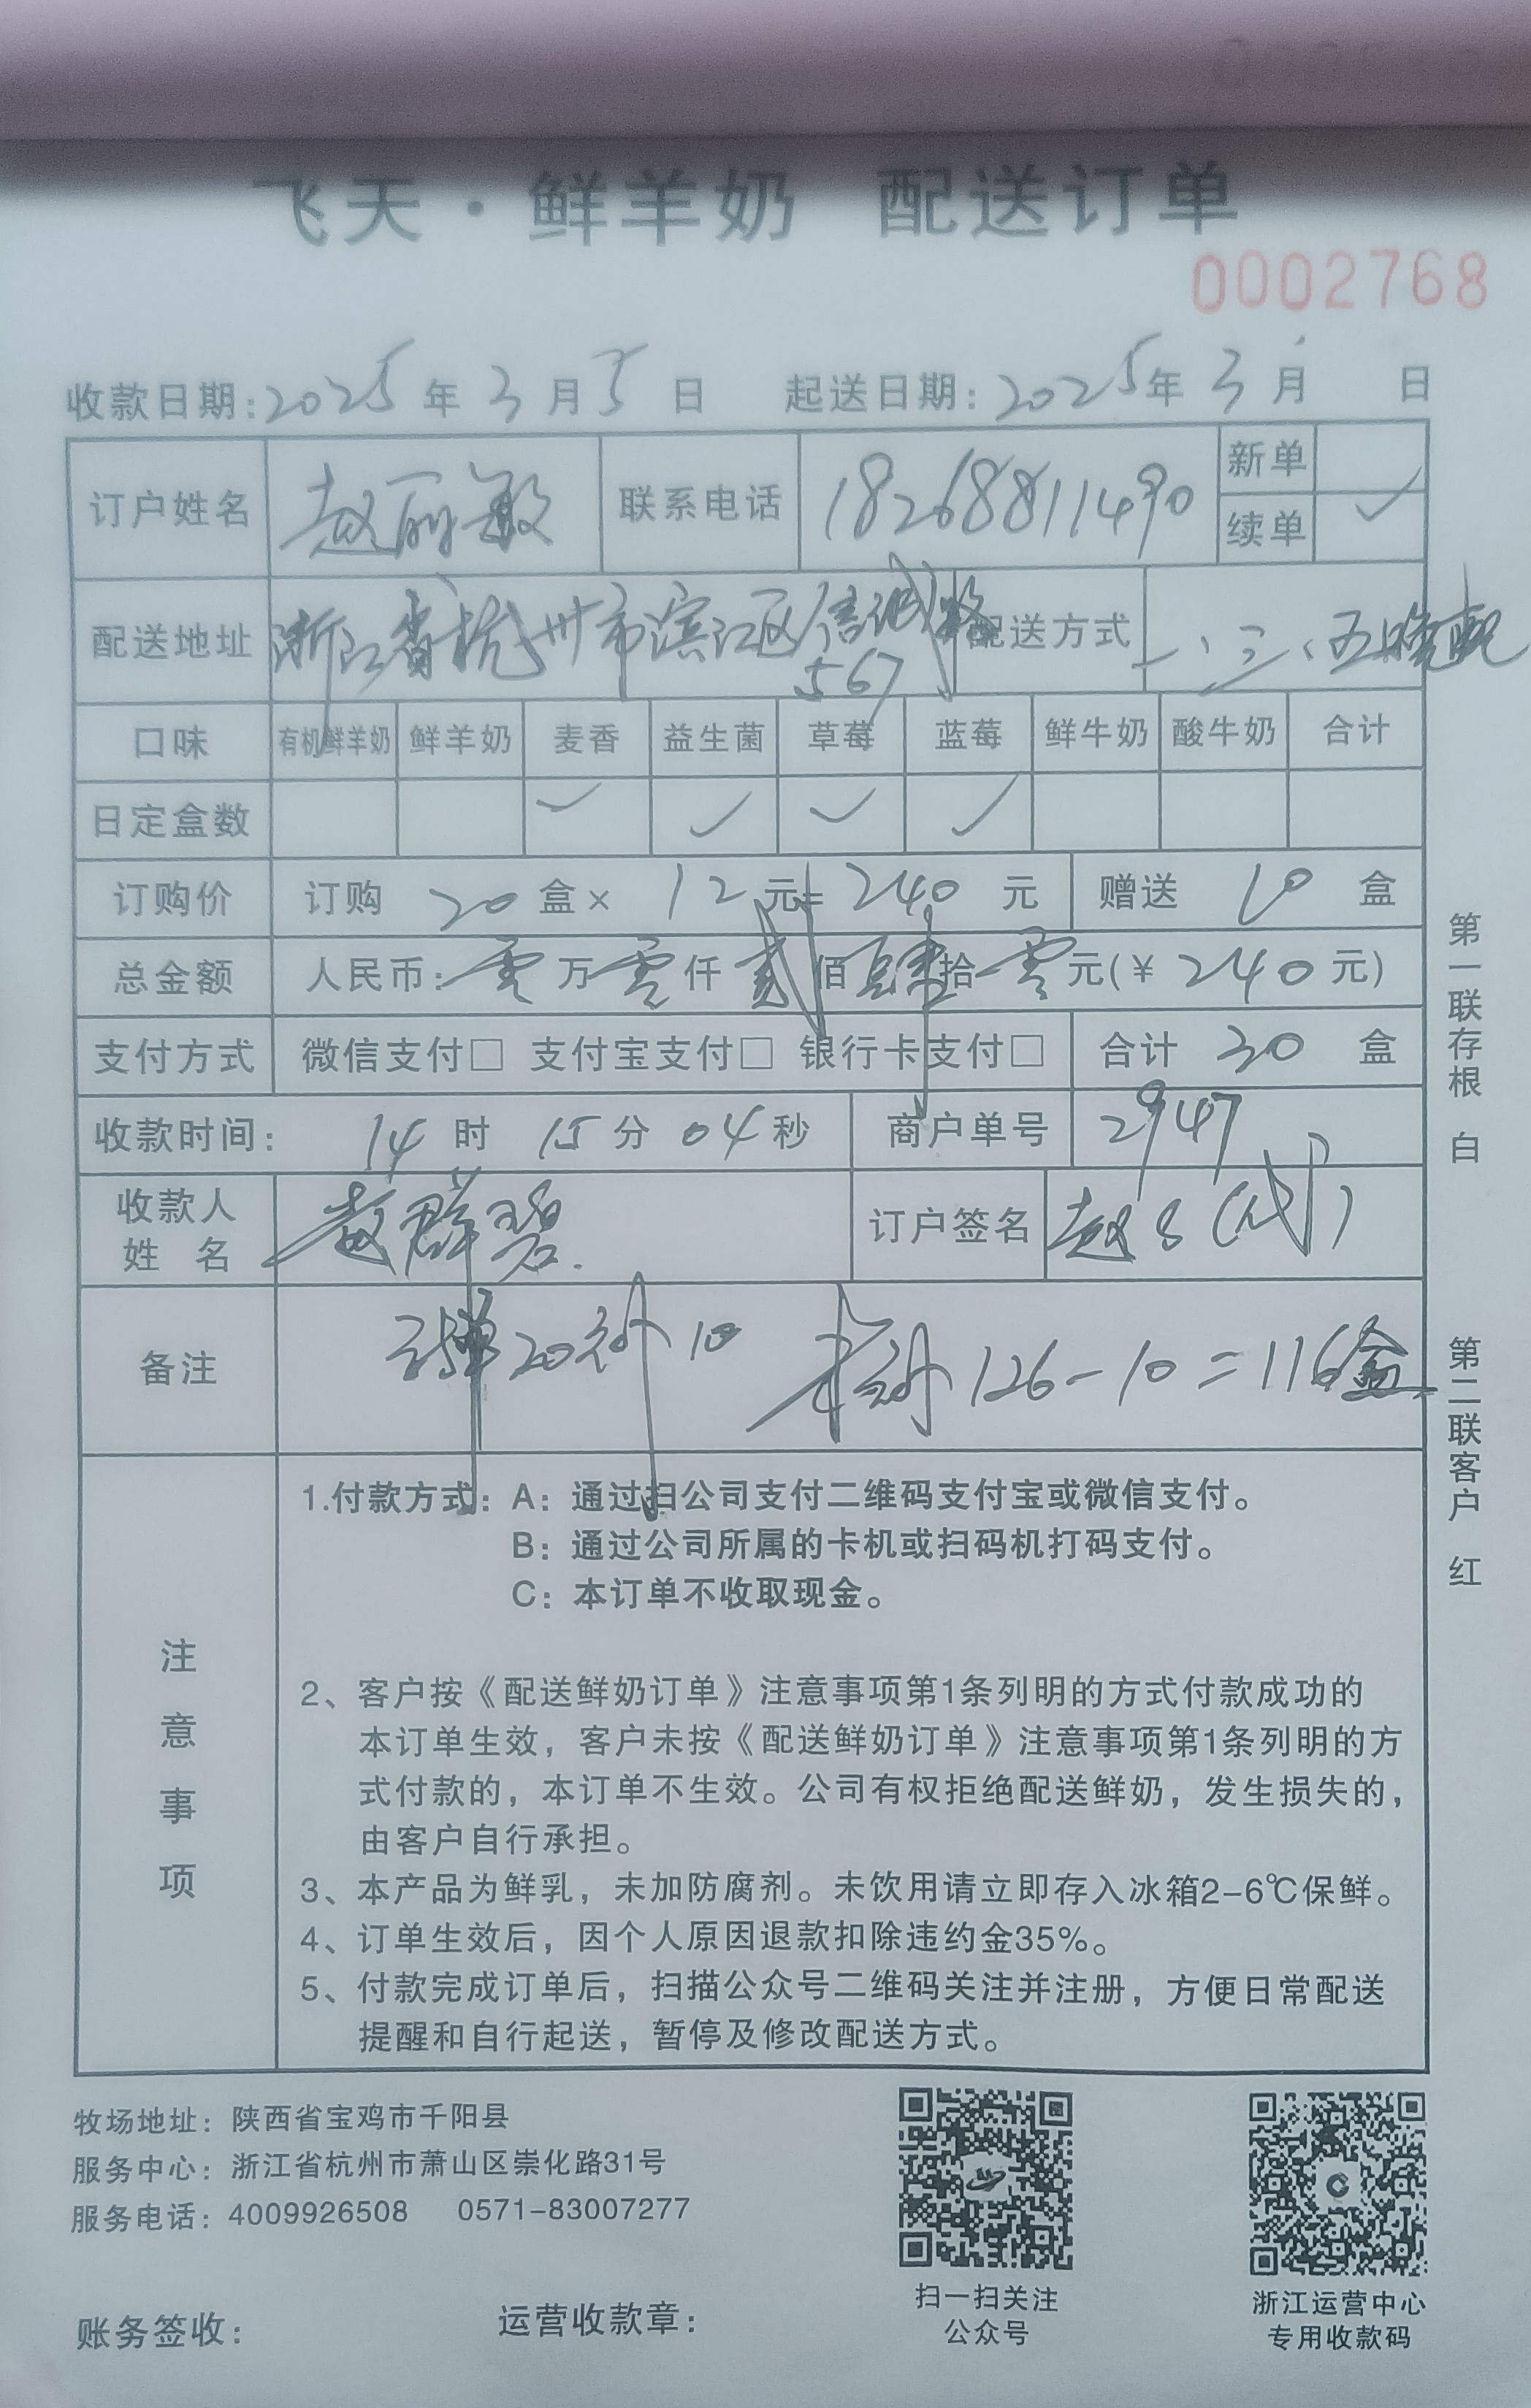 飞天·鲜羊奶 配送订单
0002768
收款日期:2025年3月5日 起送日期:2025年3月 日
订户姓名 赵丽敏 联系电话 18268811490 新单
续单 ✓
配送地址 浙江省杭州市滨江区信诚路 配送方式 一、三、五晚配
567
口味 有机鲜羊奶 鲜羊奶 麦香 益生菌 草莓 蓝莓 鲜牛奶 酸牛奶 合计
日定盒数 ✓ ✓ ✓ ✓
订购价 订购 20 盒× 12 元= 240 元 赠送 10 盒
总金额 人民币:零万零仟贰佰肆拾零元(¥ 240 元)
支付方式 微信支付□ 支付宝支付□ 银行卡支付□ 合计 30 盒
收款时间: 14 时 15 分 04 秒 商户单号 2947
收款人
姓 名 赵群碧 订户签名 赵 (代)
备注 订单20补10 未补126-10=116盒
注意事项
1.付款方式:A:通过扫公司支付二维码支付宝或微信支付。
B:通过公司所属的卡机或扫码机打码支付。
C:本订单不收取现金。
2、客户按《配送鲜奶订单》注意事项第1条列明的方式付款成功的
本订单生效,客户未按《配送鲜奶订单》注意事项第1条列明的方
式付款的,本订单不生效。公司有权拒绝配送鲜奶,发生损失的,
由客户自行承担。
3、本产品为鲜乳,未加防腐剂。未饮用请立即存入冰箱2-6℃保鲜。
4、订单生效后,因个人原因退款扣除违约金35%。
5、付款完成订单后,扫描公众号二维码关注并注册,方便日常配送
提醒和自行起送,暂停及修改配送方式。
第一联存根 白
第二联客户 红
牧场地址:陕西省宝鸡市千阳县
服务中心:浙江省杭州市萧山区崇化路31号
服务电话:4009926508 0571-83007277
扫一扫关注
公众号
浙江运营中心
专用收款码
账务签收: 运营收款章: